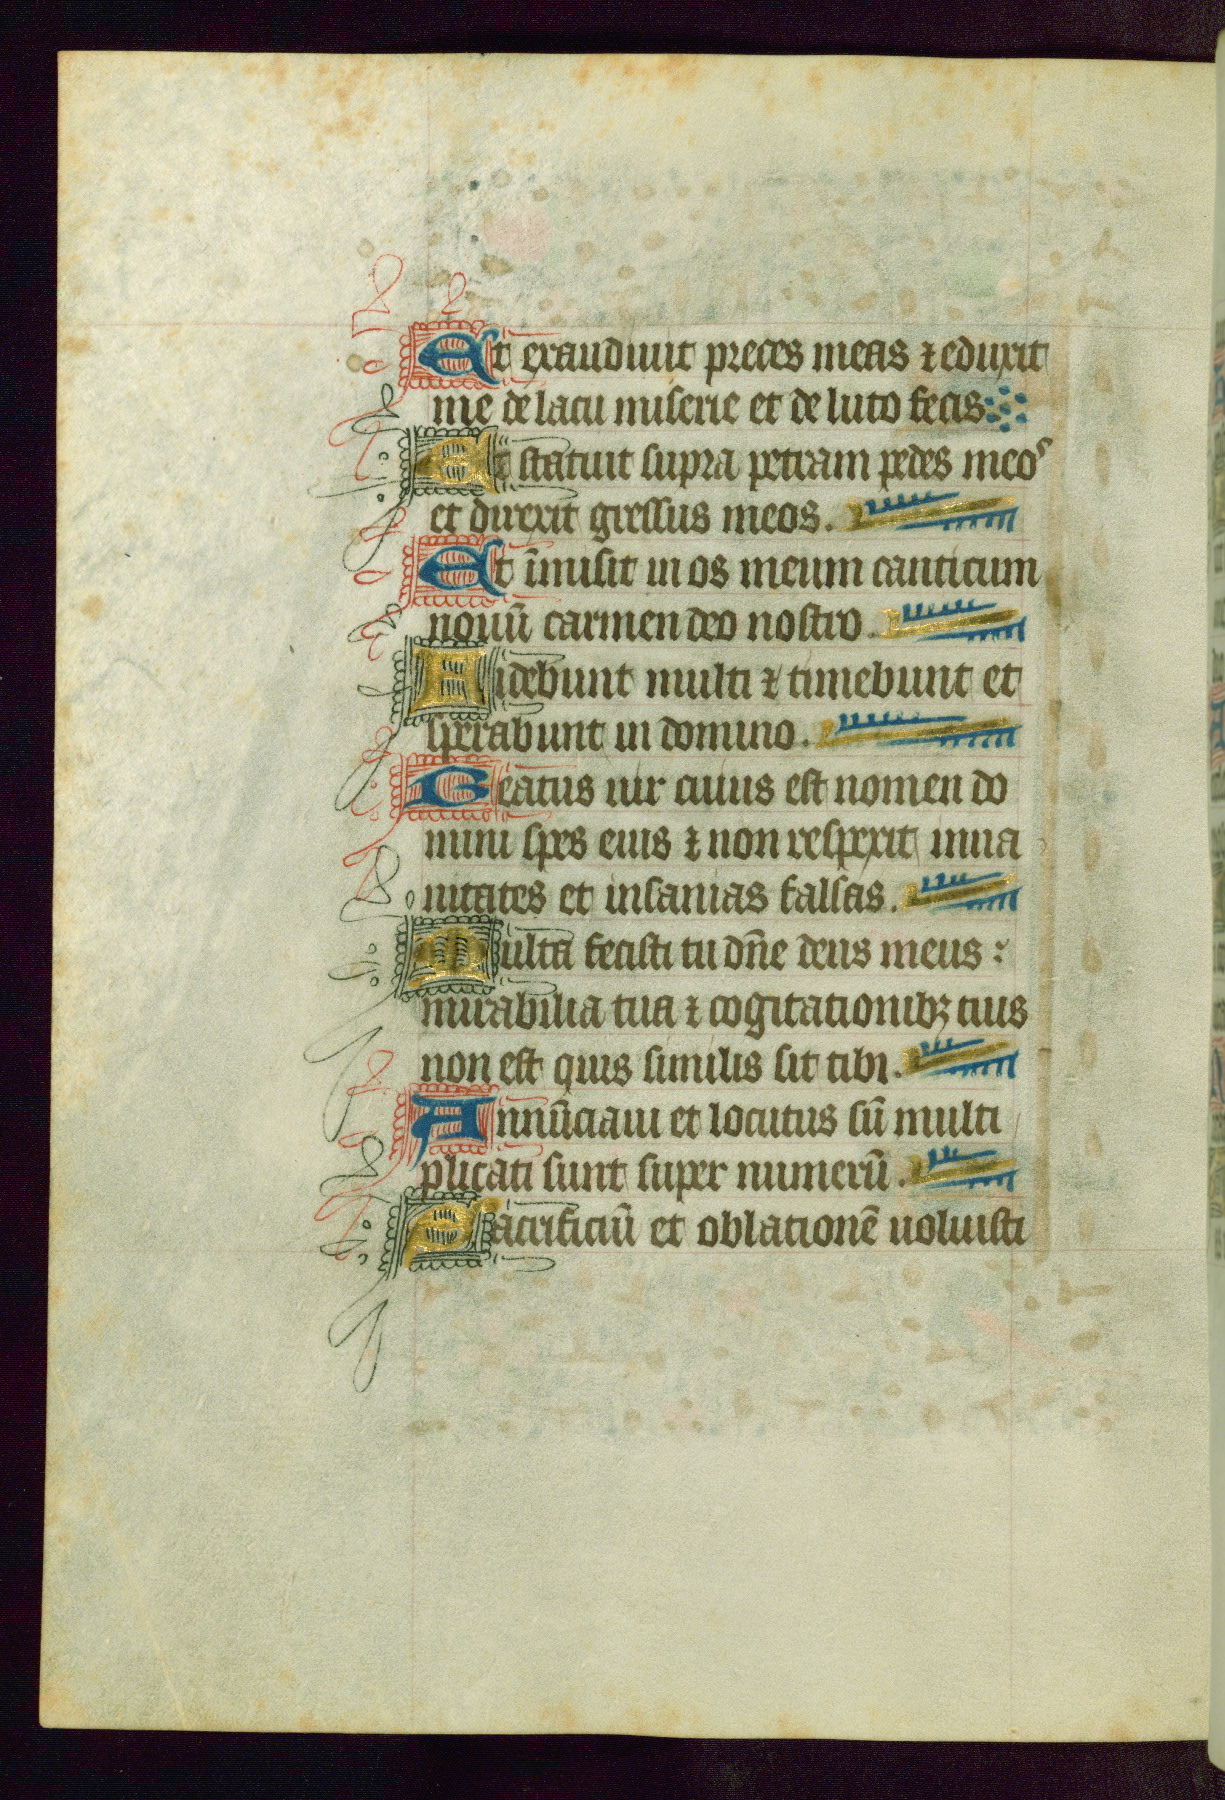 Et exaudiuit preces meas ⁊ eduxit
me de lacu miserie et de luto fecis
Et statuit supra petram pedes meos
et direxit gressus meos.
Et īmisit in os meum canticum
nouū carmen deo nostro.
Uidebunt multi ⁊ timebunt et
sperabunt in domino.
Beatus uir cuius est nomen do
mini spes eius ⁊ non respexit in ua
nitates et insanias falsas.
Multa fecisti tu dn̄e deus meus:
mirabilia tua ⁊ cogitationibꝫ tuis
non est quis similis sit tibi.
Annūciaui et locutus sū multi
plicati sunt super numerū.
Sacrificiū et oblationē uoluisti